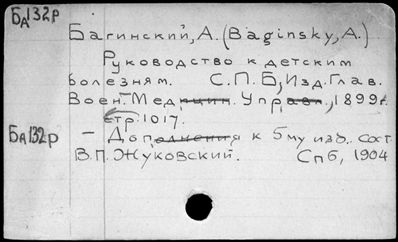 Ба132р
Багинский, А. (Baginsky, A.)
Руководство к детским
болезням. С.П.Б, Изд. Глав.
Воен. Медицин. Управл., 1899г.
стр. 1017.
Ба132р
— Дополнения к 5му изд. Сост
В.П. Жуковский. Спб, 1904